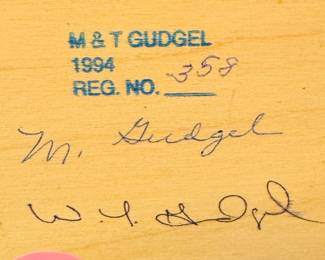 M & T GUDGEL
1994
REG. NO. 358
M. Gudgel
W. T. Gudgel